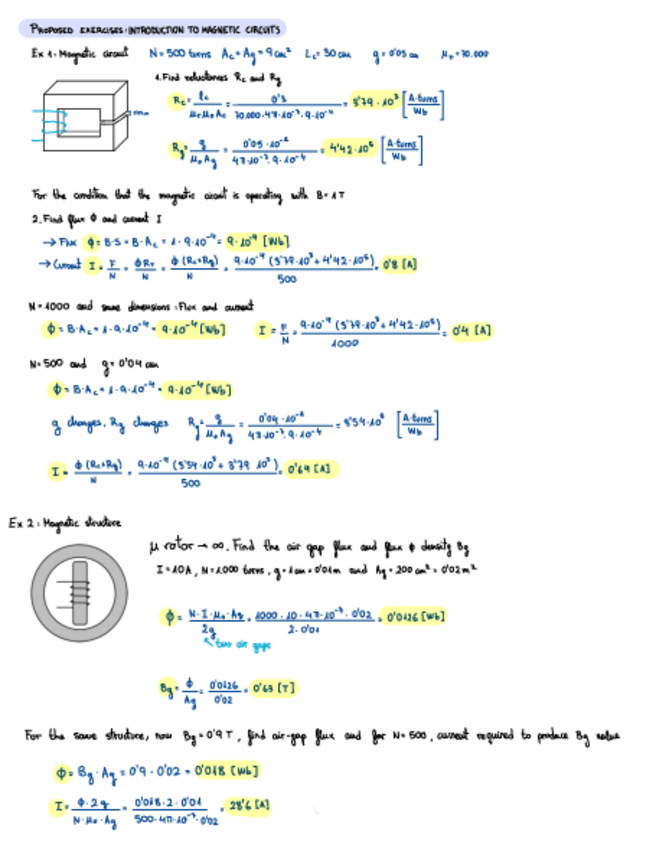 PROPOSED EXERCISES: INTRODUCTION TO MAGNETIC CIRCUITS
Ex 1: Magnetic circuit N=500 turns Ac=Ag=9cm² Lc=30cm g=0'05cm μr=70.000
1. Find reluctances Rc and Rg
Rc = lc / μrμ0Ac = 0'3 / 70.000·4π·10⁻⁷·9·10⁻⁴ = 3'79·10³ [A·turns / Wb]
Rg = g / μ0Ag = 0'05·10⁻² / 4π·10⁻⁷·9·10⁻⁴ = 4'42·10⁵ [A·turns / Wb]
For the condition that the magnetic circuit is operating with B=1T
2. Find flux Φ and current I
→ Flux Φ=B·S=B·Ac=1·9·10⁻⁴=9·10⁻⁴ [Wb]
→ Current I = F / N = ΦRT / N = Φ(Rc+Rg) / N = 9·10⁻⁴(3'79·10³+4'42·10⁵) / 500 = 0'8 [A]
N=1000 and same dimensions: Flux and current
Φ=B·Ac=1·9·10⁻⁴=9·10⁻⁴[Wb] I = F / N = 9·10⁻⁴(3'79·10³+4'42·10⁵) / 1000 = 0'4 [A]
N=500 and g=0'04 cm
Φ=B·Ac=1·9·10⁻⁴=9·10⁻⁴[Wb]
g changes, Rg changes Rg = g / μ0Ag = 0'04·10⁻² / 4π·10⁻⁷·9·10⁻⁴ = 3'54·10⁵ [A·turns / Wb]
I = Φ(Rc+Rg) / N = 9·10⁻⁴(3'54·10⁵+3'79·10³) / 500 = 0'64 [A]
Ex 2: Magnetic structure
μ rotor → ∞. Find the air gap flux and flux Φ density Bg
I=10A, N=1000 turns, g=1cm=0'01m and Ag=200cm²=0'02m²
Φ = N·I·μ0·Ag / 2g = 1000·10·4π·10⁻⁷·0'02 / 2·0'01 = 0'0126 [Wb]
two air gaps
Bg = Φ / Ag = 0'0126 / 0'02 = 0'63 [T]
For the same structure, now Bg=0'9T, find air-gap flux and for N=500, current required to produce Bg value
Φ=Bg·Ag=0'9·0'02=0'018 [Wb]
I = Φ·2g / N·μ0·Ag = 0'018·2·0'01 / 500·4π·10⁻⁷·0'02 = 28'6 [A]